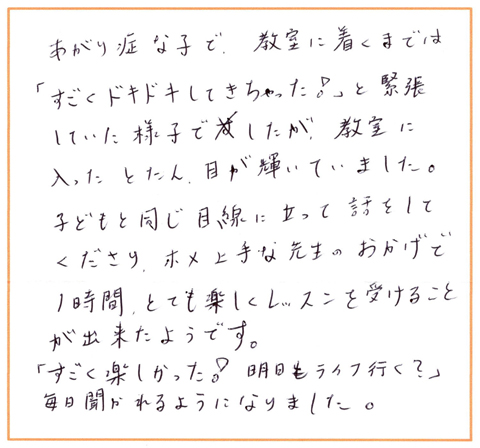 あがり症な子で、教室に着くまでは
「すごくドキドキしてきちゃった!」と緊張
していた様子でしたが、教室に
入ったとたん、目が輝いていました。
子どもと同じ目線に立って話をして
くださり、ホメ上手な先生のおかげで
1時間、とても楽しくレッスンを受けること
が出来たようです。
「すごく楽しかった!明日もライフ行く?」
毎日聞かれるようになりました。